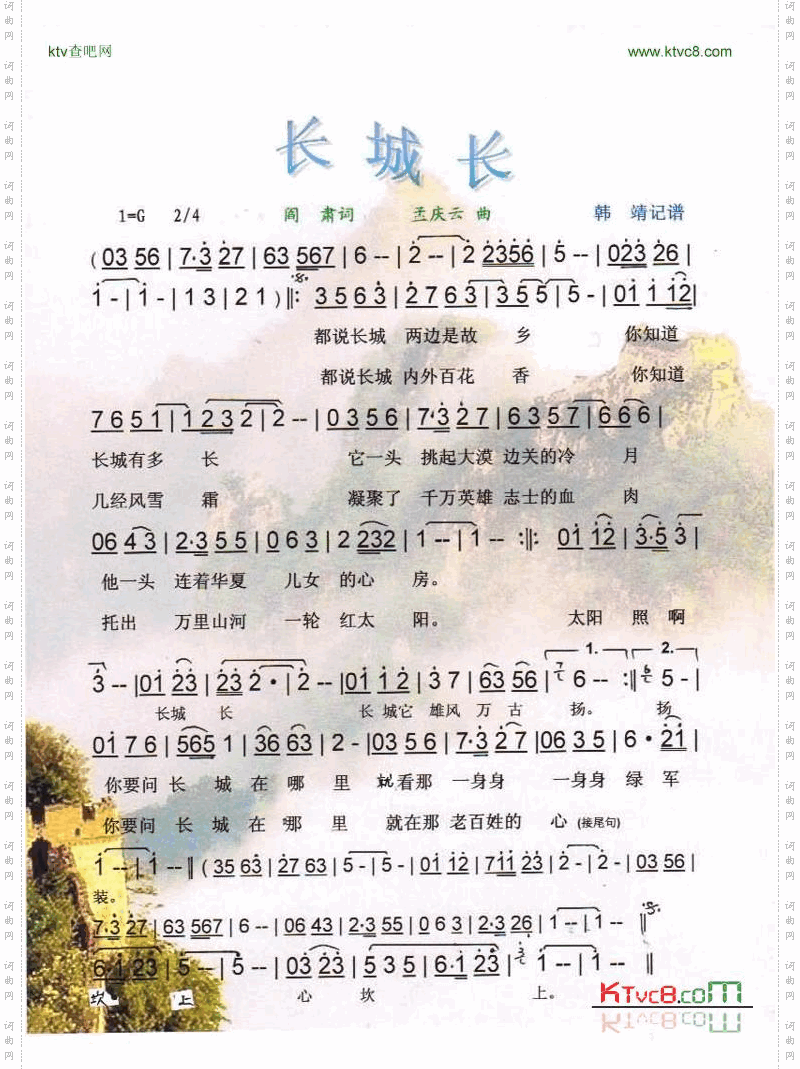 ktv查吧网 www.ktvc8.com
长城长
1=G 2/4 阎 肃词 孟庆云 曲 韩 靖记谱
(03 56 | 7·3 27 | 63 567 | 6 -- | 2 -- | 2 2356 | 5 -- | 023 26 |
1 - | 1 - | 1 3 | 2 1 ) ‖: 3 5 6 3 | 2 7 6 3 | 3 5 5 | 5 - | 01 1 12 |
都说长城 两边是故 乡 你知道
都说长城 内外百花 香 你知道
7 6 5 1 | 1 2 3 2 | 2 -- | 0 3 5 6 | 7·3 2 7 | 6 3 5 7 | 6 6 6 |
长城有多 长 它一头 挑起大漠 边关的冷 月
几经风雪 霜 凝聚了 千万英雄 志士的血 肉
06 4 3 | 2·3 5 5 | 0 6 3 | 2 232 | 1 -- | 1 -- :‖: 01 12 | 3·5 3 |
他一头 连着华夏 儿女 的心 房。
托出 万里山河 一轮 红太 阳。 太阳 照 啊
1. 2.
3 -- | 01 23 | 23 2 · | 2 -- | 01 1 2 | 3 7 | 63 56 | 6 -- :‖ 5 - |
长城 长 长 城它 雄风 万 古 扬。 扬
01 7 6 | 565 1 | 36 63 | 2 - | 03 5 6 | 7·3 2 7 | 06 3 5 | 6 · 21 |
你要问 长 城 在 哪 里 就看那 一身身 一身身 绿 军
你要问 长 城 在 哪 里 就在那 老百姓的 心 (接尾句)
1 -- | 1 -- ‖ ( 35 63 | 27 63 | 5 - | 5 - | 01 12 | 711 23 | 2 - | 2 - | 03 56 |
装。
7·3 27 | 63 567 | 6 -- | 06 43 | 2·3 55 | 0 6 3 | 2·3 26 | 1 -- | 1 -- ‖
6·1 23 | 5 -- | 5 -- | 03 23 | 5 3 5 | 6·1 23 | 1 -- | 1 -- ‖
坎 上 心 坎 上。
KTvc8.com
词曲网